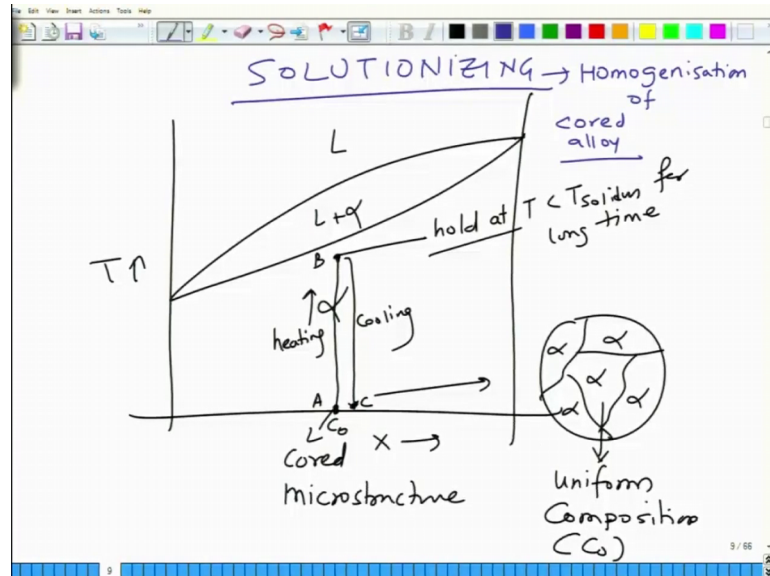 File Edit View Insert Actions Tools Help
B I
SOLUTIONIZING → Homogenisation
of
cored
alloy
L
L+α
hold at T < Tsolidus for
long time
T↑
B
α
heating
cooling
A
C
C₀
X →
Cored
microstructure
α
α
α
α
α
Uniform
Composition
(C₀)
9/66
9